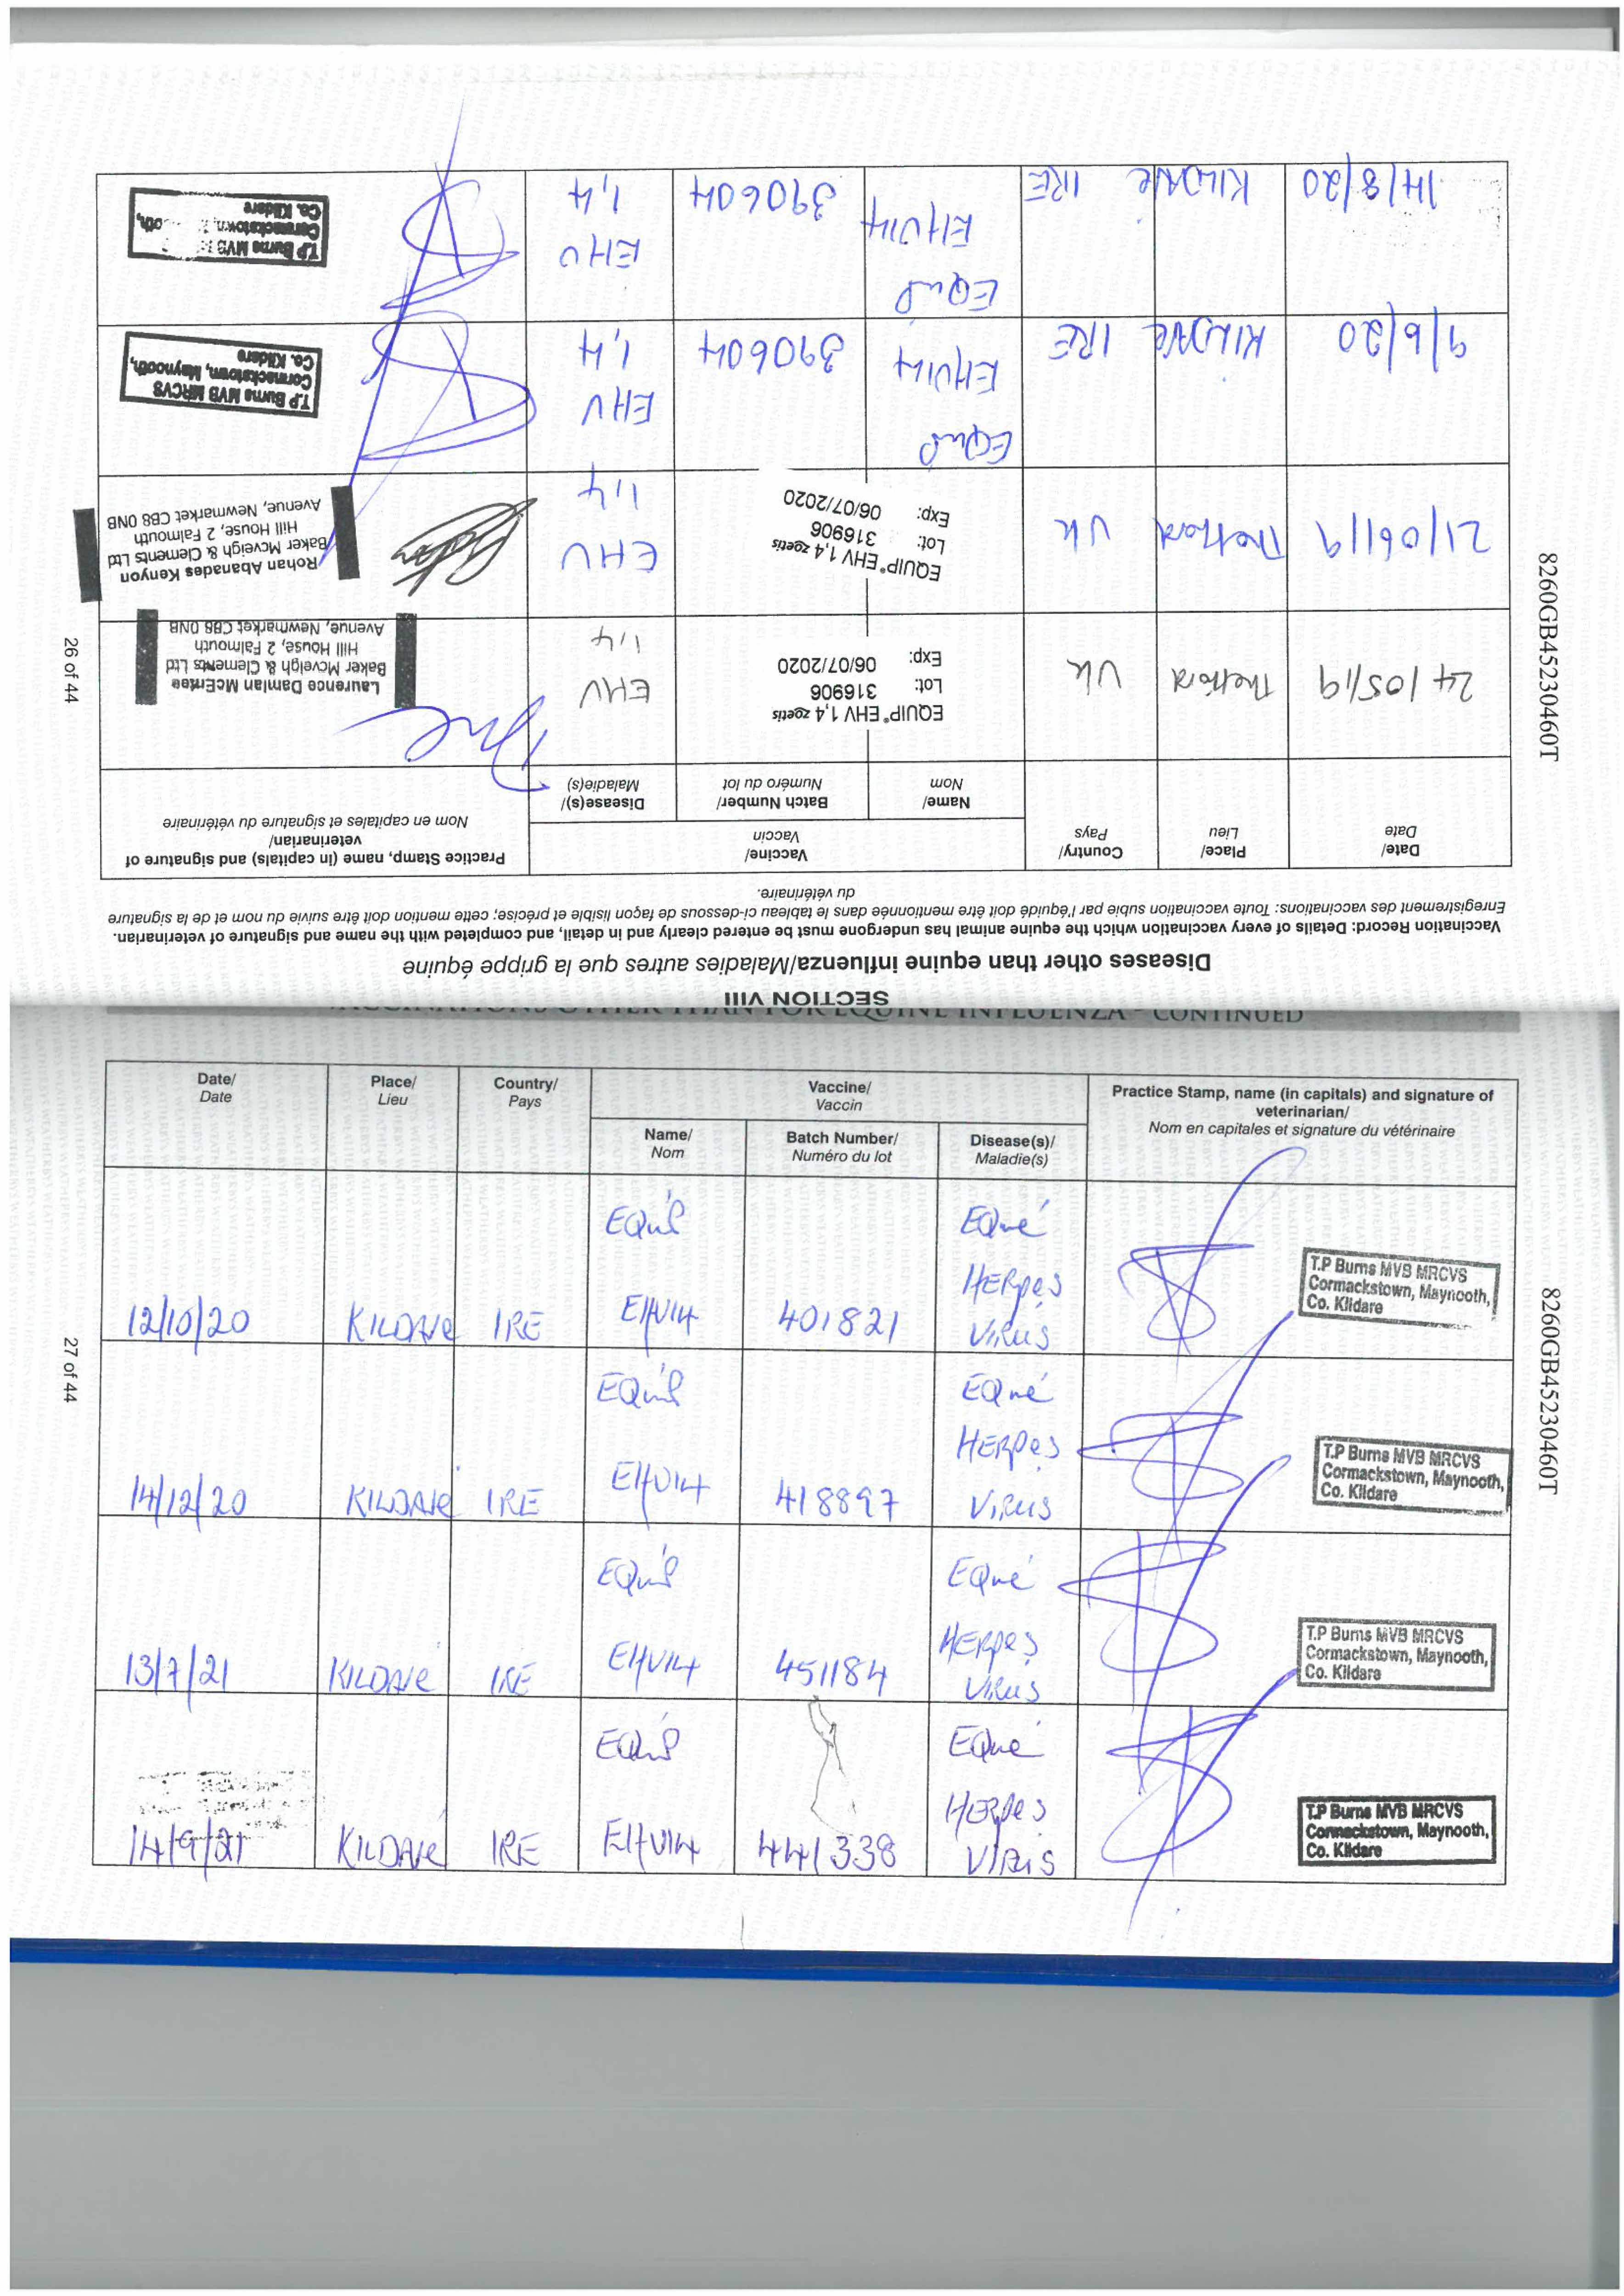 SECTION VIII
Diseases other than equine influenza/Maladies autres que la grippe équine
Vaccination Record: Details of every vaccination which the equine animal has undergone must be entered clearly and in detail, and completed with the name and signature of veterinarian.
Enregistrement des vaccinations: Toute vaccination subie par l'équidé doit être mentionnée dans le tableau ci-dessous de façon lisible et précise; cette mention doit être suivie du nom et de la signature
du vétérinaire.
Date/
Date
Place/
Lieu
Country/
Pays
Vaccine/
Vaccin
Name/
Nom
Batch Number/
Numéro du lot
Disease(s)/
Maladie(s)
Practice Stamp, name (in capitals) and signature of
veterinarian/
Nom en capitales et signature du vétérinaire
24/05/19
Thetford
UK
EQUIP® EHV 1,4 zoetis
Lot: 316906
Exp: 06/07/2020
EHV
1,4
Laurence Damian McEntee
Baker Mcveigh & Clements Ltd
Hill House, 2 Falmouth
Avenue, Newmarket CB8 0NB
21/06/19
Thetford
UK
EQUIP® EHV 1,4 zoetis
Lot: 316906
Exp: 06/07/2020
EHV
1,4
Rohan Abanades Kenyon
Baker Mcveigh & Clements Ltd
Hill House, 2 Falmouth
Avenue, Newmarket CB8 0NB
9/6/20
KILDARE
IRE
EQUIP
EHV14
390604
EHV
1,4
T.P Burns MVB MRCVS
Cormackstown, Maynooth,
Co. Kildare
14/8/20
KILDARE
IRE
EQUIP
EHV14
390604
EHV
1,4
T.P Burns MVB
Cormackstown,
Co. Kildare
26 of 44
8260GB45230460T
VACCINATIONS OTHER THAN FOR EQUINE INFLUENZA - CONTINUED
Date/
Date
Place/
Lieu
Country/
Pays
Vaccine/
Vaccin
Name/
Nom
Batch Number/
Numéro du lot
Disease(s)/
Maladie(s)
Practice Stamp, name (in capitals) and signature of
veterinarian/
Nom en capitales et signature du vétérinaire
12/10/20
KILDARE
IRE
EQUIP
EHV14
401821
EQUE
HERPES
VIRUS
T.P Burns MVB MRCVS
Cormackstown, Maynooth,
Co. Kildare
14/12/20
KILDARE
IRE
EQUIP
EHV14
418897
EQUE
HERPES
VIRUS
T.P Burns MVB MRCVS
Cormackstown, Maynooth,
Co. Kildare
13/7/21
KILDARE
IRE
EQUIP
EHV14
451184
EQUE
HERPES
VIRUS
T.P Burns MVB MRCVS
Cormackstown, Maynooth,
Co. Kildare
14/9/21
KILDARE
IRE
EQUIP
EHV14
441338
EQUE
HERPES
VIRUS
T.P Burns MVB MRCVS
Cormackstown, Maynooth,
Co. Kildare
27 of 44
8260GB45230460T